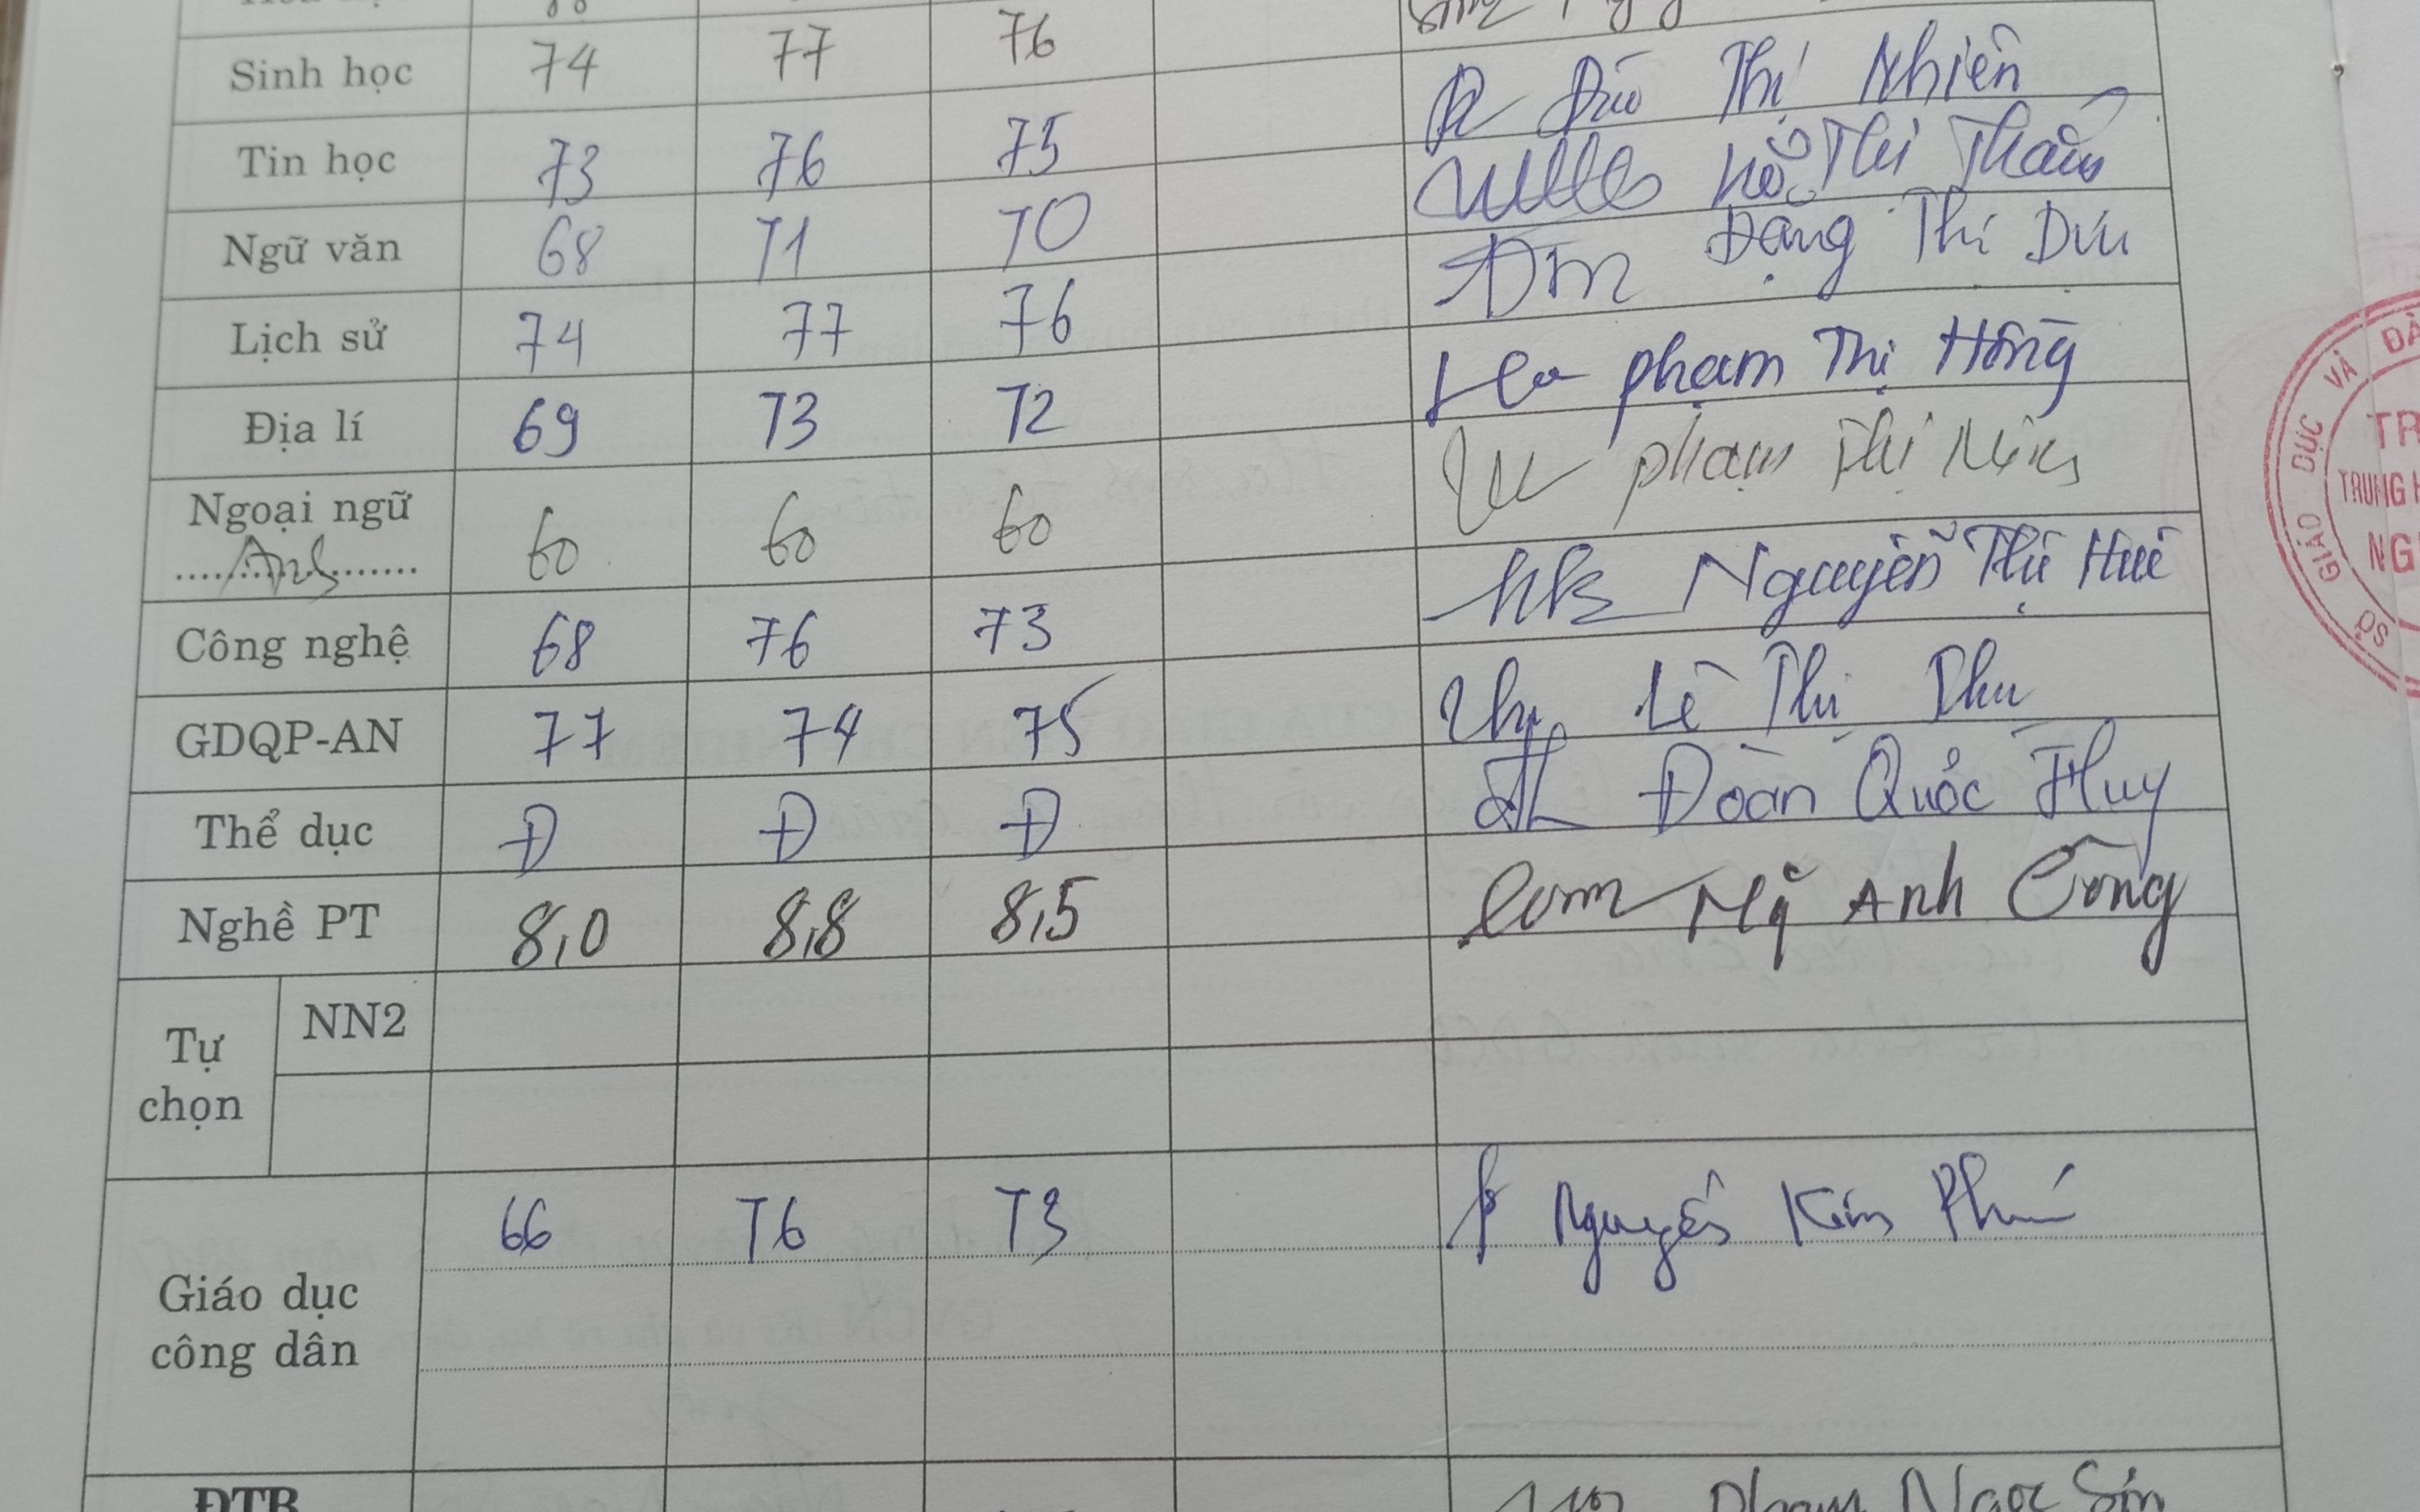 Sinh học 74 77 76 Thị Nhiên
Tin học 73 76 75 Hồ Thị Thắm
Ngữ văn 68 71 70 Đặng Thị Dịu
Lịch sử 74 77 76 Phạm Thị Hồng
Địa lí 69 73 72 Phạm Thị
Ngoại ngữ 60 60 60 Nguyễn Thị Huê
Anh
Công nghệ 68 76 73 Lê Thị Thu
GDQP-AN 77 74 75 Đoàn Quốc Huy
Thể dục Đ Đ Đ
Nghề PT 8,0 8,8 8,5 Anh Công
Tự chọn
NN2
Giáo dục công dân 66 76 73 Nguyễn Kim Phú
ĐTB
Ngọc Sơn
SỞ GIÁO DỤC VÀ ĐÀ
TR
TRUNG H
NG